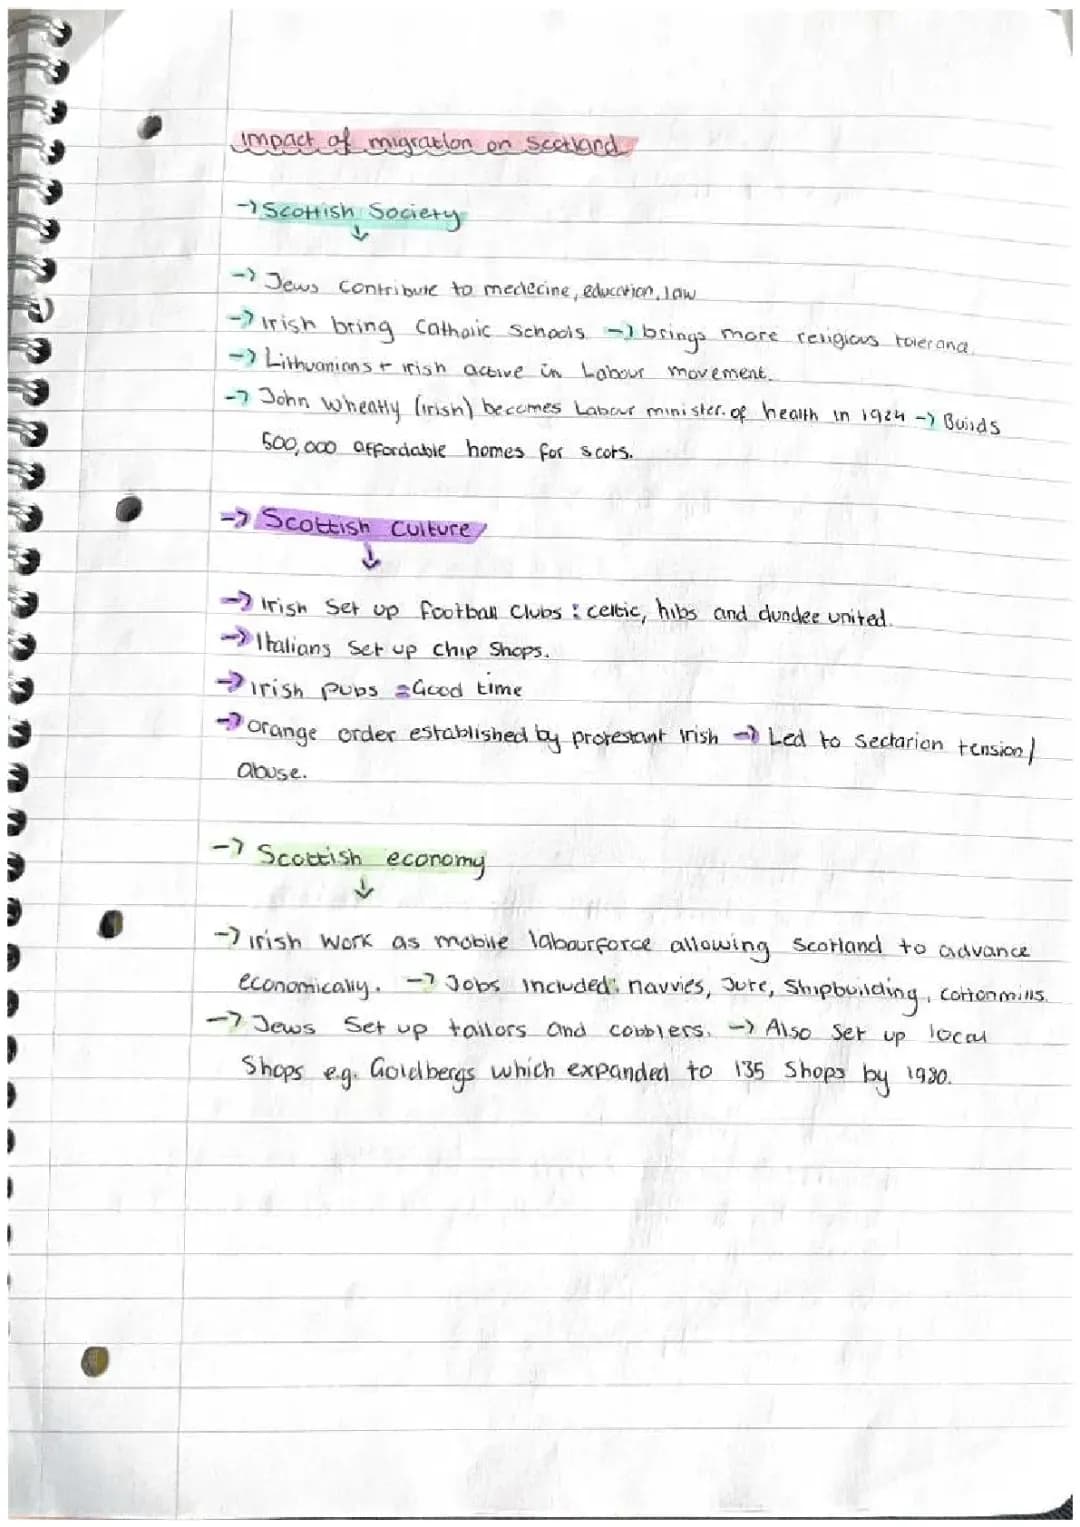 Impact of migration on Scotland
→ Scottish Society
↓
→ Jews contribute to medecine, education, law
→ Irish bring Catholic Schools → brings more religious toleranc.
→ Lithuanians + irish active in Labour movement.
→ John Wheatly (irish) becomes Labour minister of health in 1924 → Builds
500,000 affordable homes for scots.
→ Scottish Culture
↓
→ Irish Set up football clubs: celtic, hibs and dundee united.
→ Italians Set up chip Shops.
→ Irish pubs = Good time
→ Orange order established by protestant Irish → Led to Sectarian tension/
abuse.
→ Scottish economy
↓
→ Irish work as mobile labourforce allowing Scotland to advance
economically. → Jobs included: navvies, Jute, Shipbuilding, cottonmills.
→ Jews Set up tailors and cobblers. → Also set up local
Shops e.g. Goldbergs which expanded to 135 Shops by 1980.